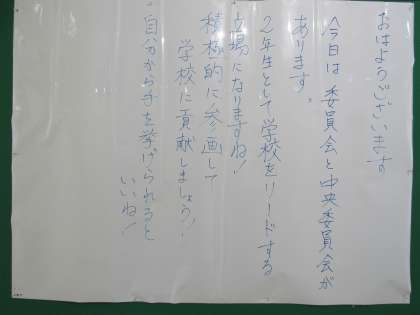 おはようございます
今日は委員会と中央委員会が
あります。
2年生として学校をリードする
立場になりますね!
積極的に参画して
学校に貢献しましょう!
自分から手を挙げられると
いいね!